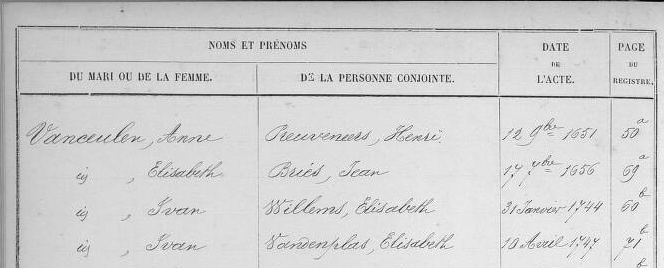 NOMS ET PRÉNOMS DATE PAGE
DE DU
DU MARI OU DE LA FEMME. DE LA PERSONNE CONJOINTE. L'ACTE. REGISTRE.
Vanceulen, Anne Reuveners, Henri. 12 9bre 1651 50 a
id , Elisabeth Briés, Jean 17 7bre 1656 69 a
id , Ivan Willems, Elisabeth 31 Janvier 1744 60 b
id , Ivan Vandenplas, Elisabeth 10 Avril 1747 71 b
b